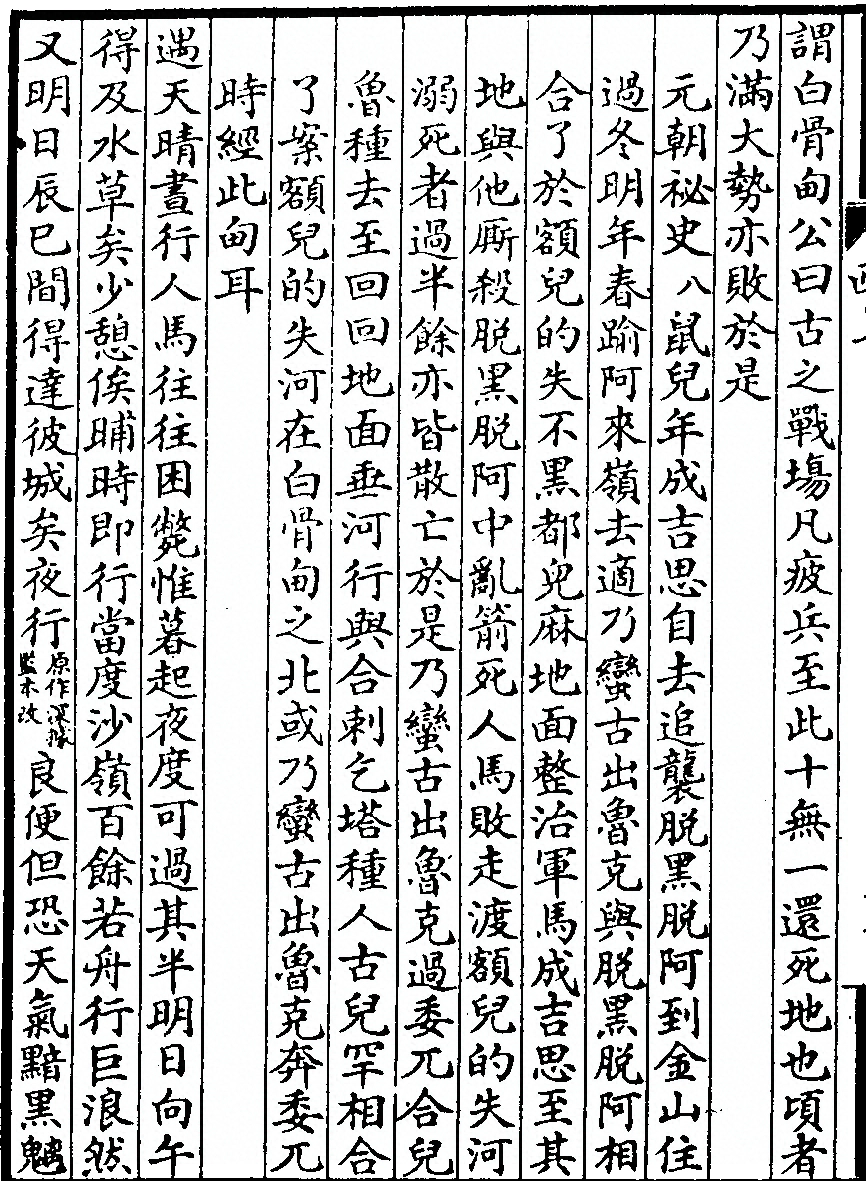 謂白骨甸公曰古之戰場凡疲兵至此十無一還死地也頃者
乃滿大勢亦敗於是
元朝祕史八鼠兒年成吉思自去追襲脱黑脱阿到金山住
過冬明年春踰阿來嶺去適乃蠻古出魯克與脱黑脱阿相
合了於額兒的失不黑都兒麻地面整治軍馬成吉思至其
地與他厮殺脱黑脱阿中亂箭死人馬敗走渡額兒的失河
溺死者過半餘亦皆散亡於是乃蠻古出魯克過委兀合兒
魯種去至回回地面垂河行與合剌乞塔種人古兒罕相合
了案額兒的失河在白骨甸之北或乃蠻古出魯克奔委兀
時經此甸耳
遇天晴晝行人馬往往困斃惟暮起夜度可過其半明日向午
得及水草矣少憩俟晡時即行當度沙嶺百餘若舟行巨浪然
又明日辰巳間得達彼城矣夜行原作深據監本改良便但恐天氣黯黑魑